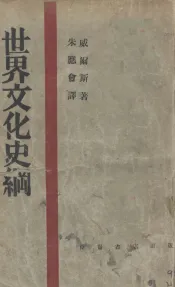 威爾斯著
朱應會譯
世界文化史綱